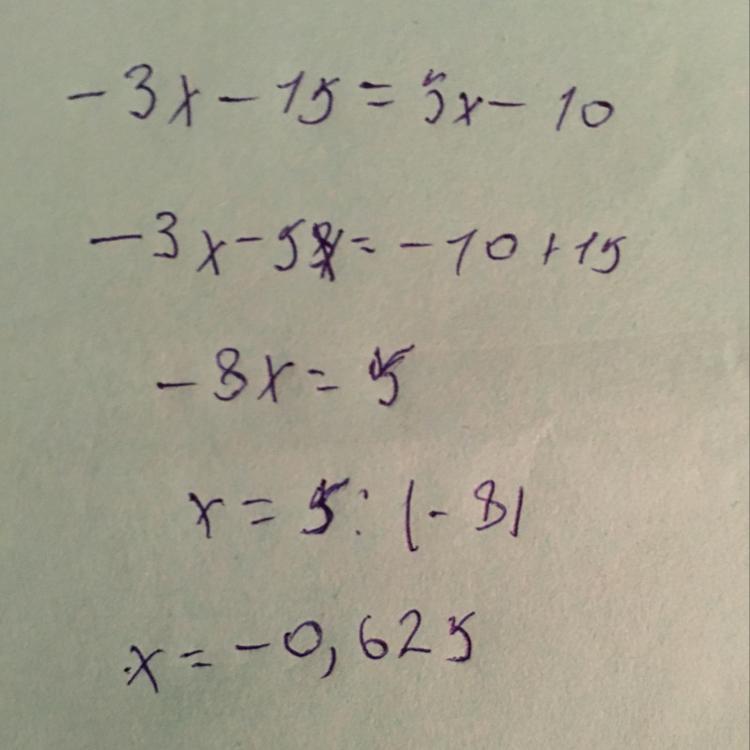 -3x-15=5x-10
-3x-5x=-10+15
-8x=5
x=5:(-8)
x=-0,625